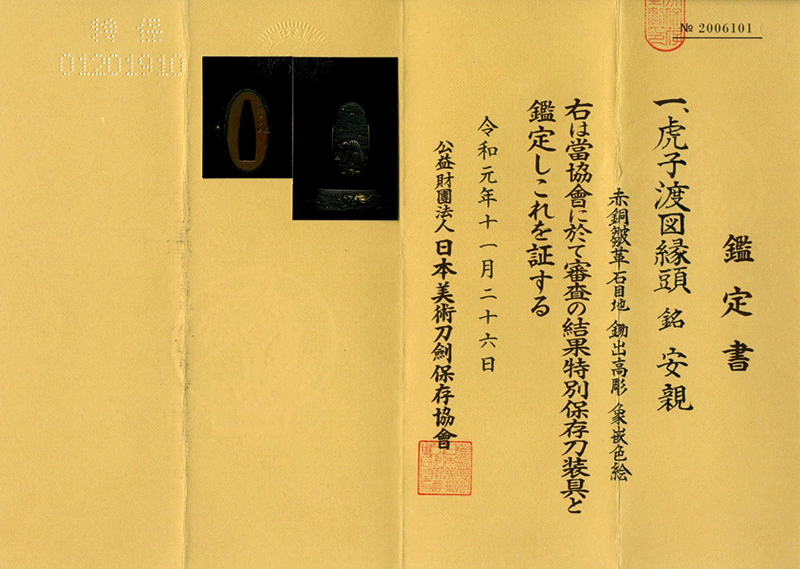 鑑定書
一、虎子渡図縁頭 銘 安親
赤銅皺革石目地 鋤出高彫 象嵌色絵
右は當協會に於て審査の結果特別保存刀装具と
鑑定しこれを証する
令和元年十一月二十六日
公益財團法人 日本美術刀劍保存協會
№ 2006101
特保
01201910